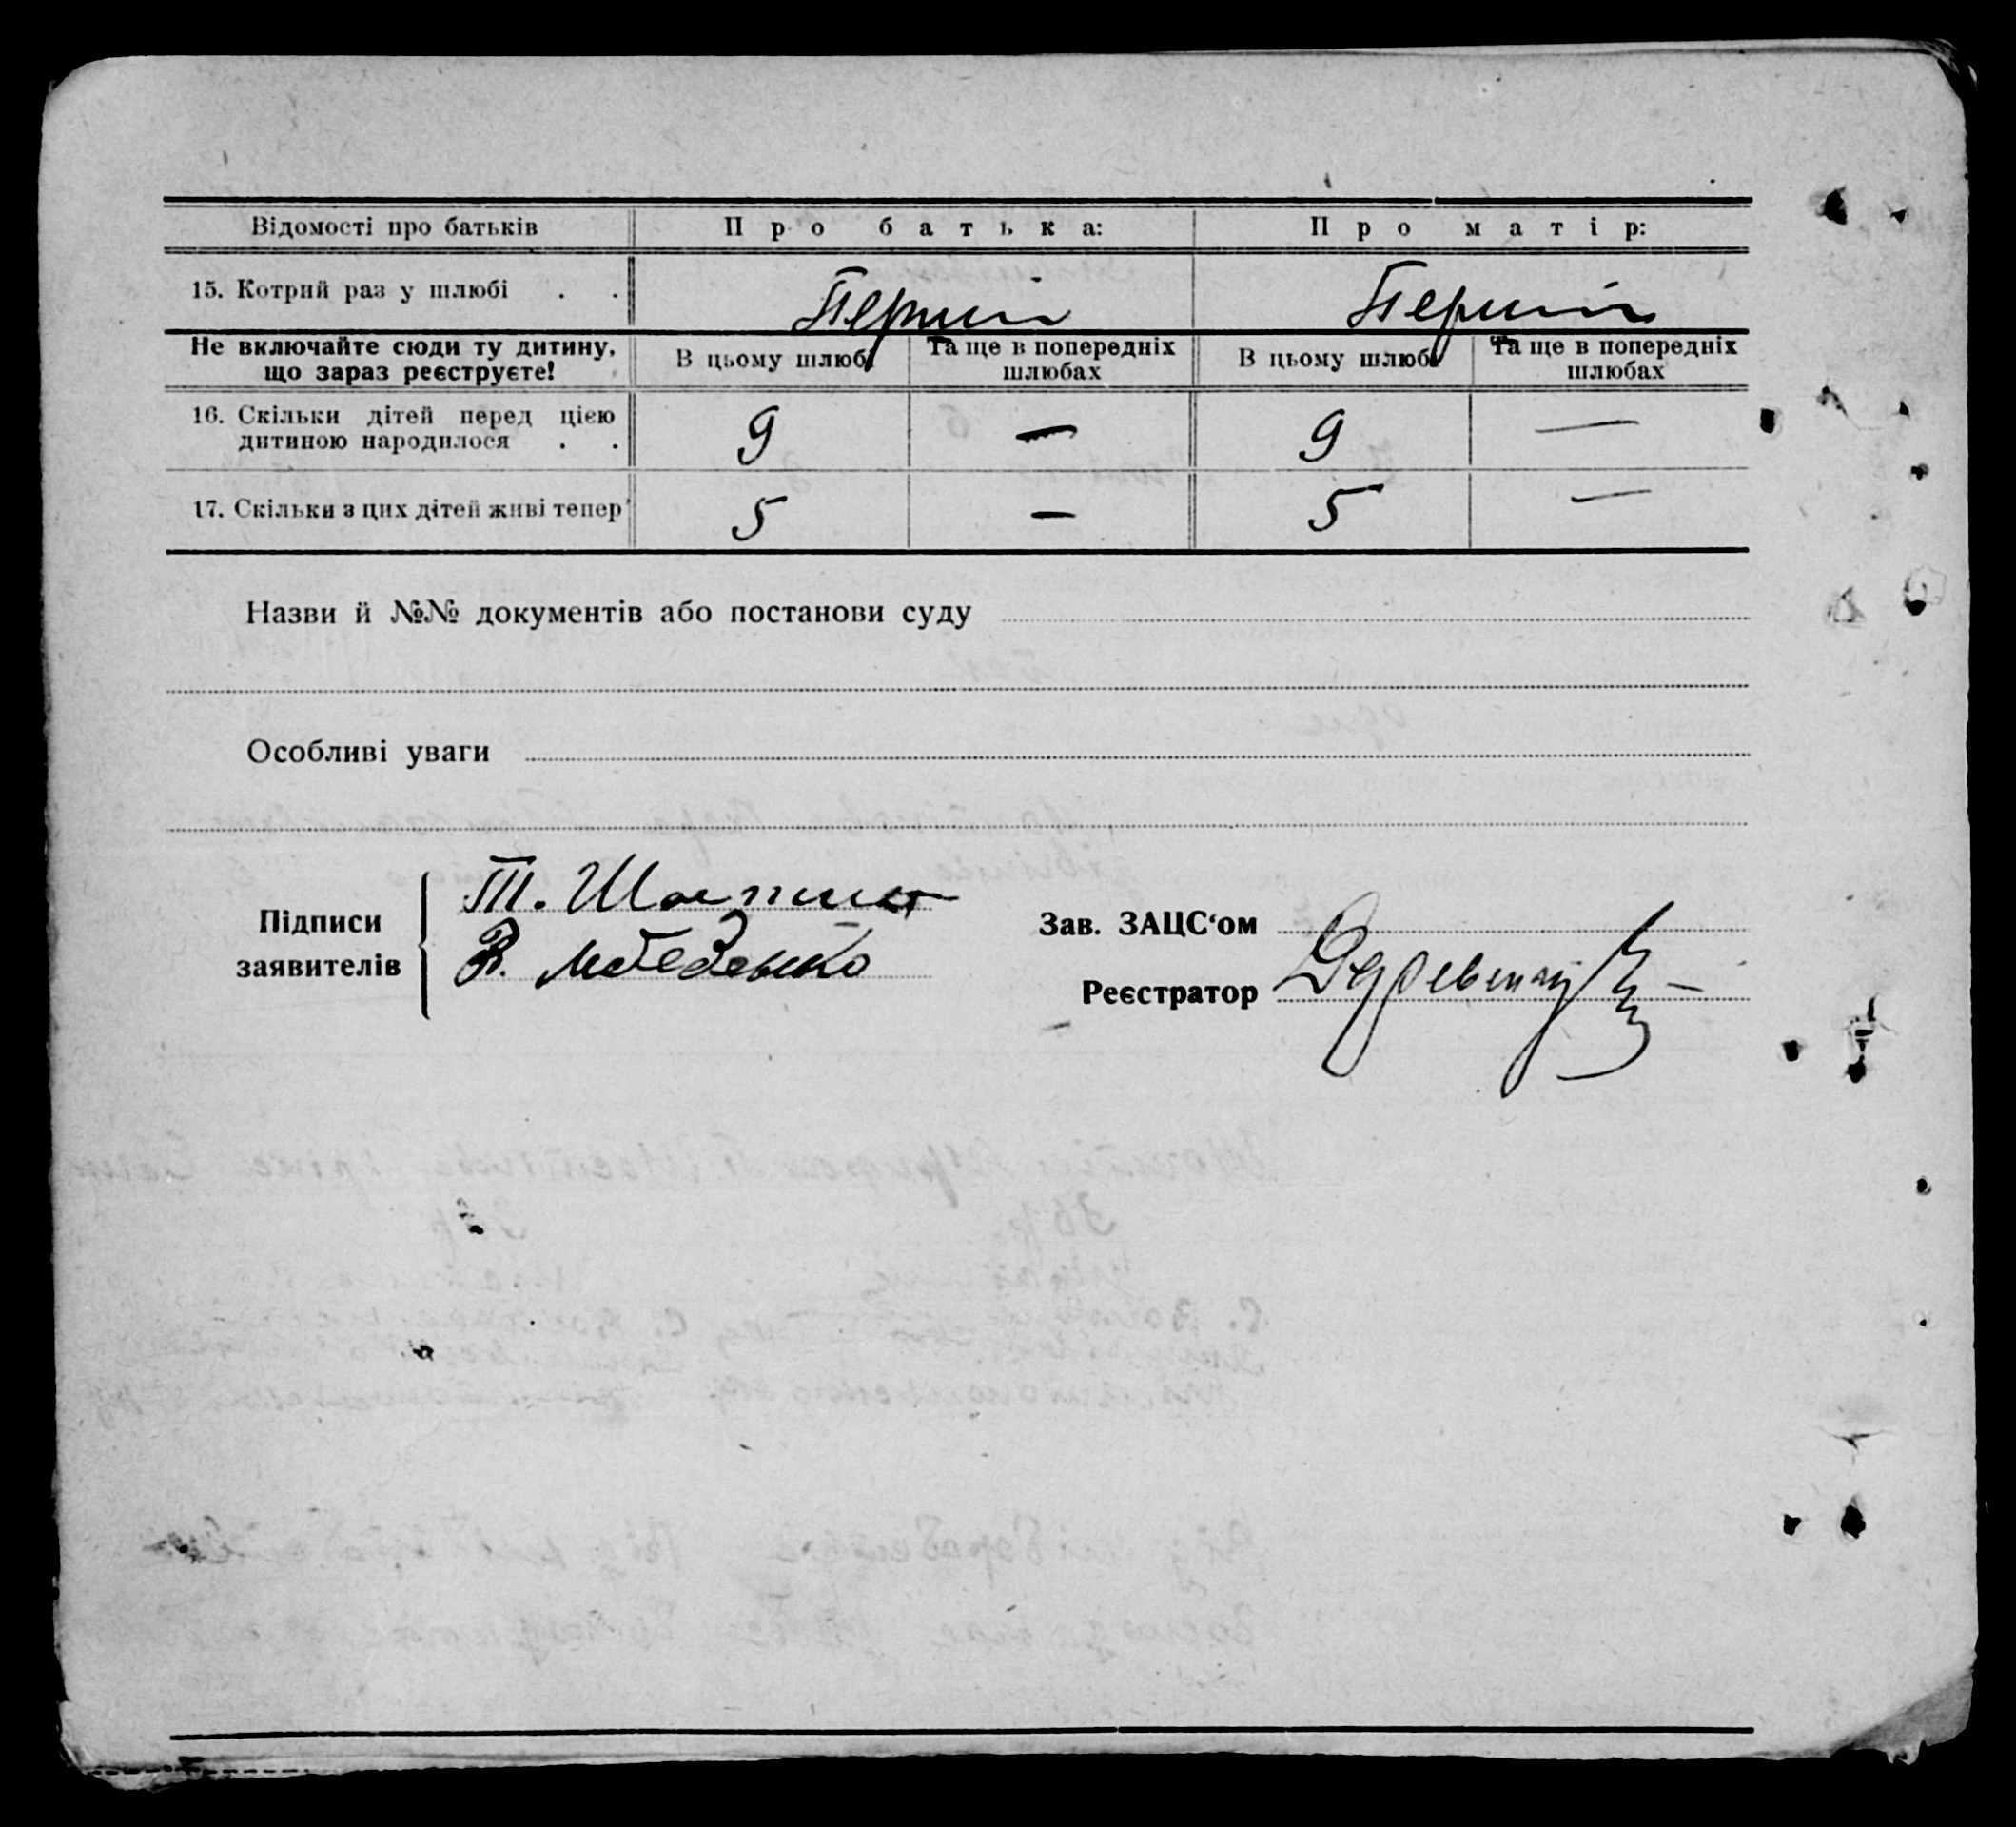 Відомості про батьків Про батька: Про матір:
15. Котрий раз у шлюбі . . Перший Перший
Не включайте сюди ту дитину, що зараз реєструєте! В цьому шлюбі Та ще в попередніх шлюбах В цьому шлюбі Та ще в попередніх шлюбах
16. Скільки дітей перед цією дитиною народилося . . 9 — 9 —
17. Скільки з цих дітей живі тепер 5 — 5 —
Назви й №№ документів або постанови суду
Особливі уваги
Підписи заявителів
Т.
В. Лебеденко
Зав. ЗАЦС‘ом
Реєстратор